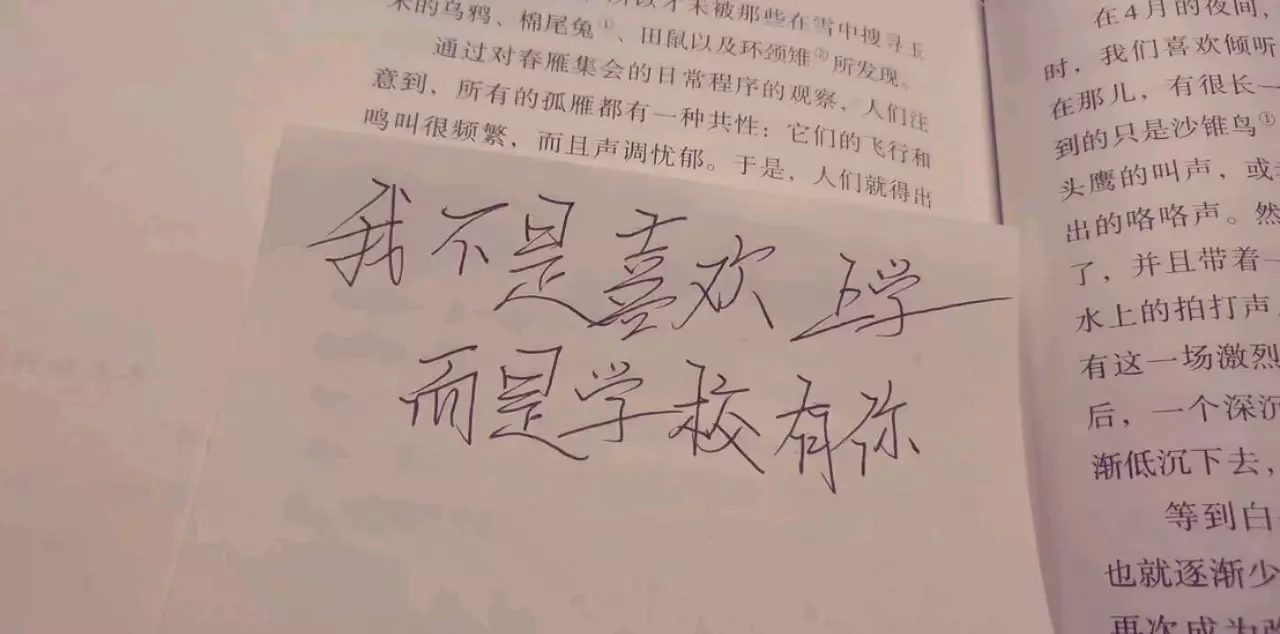 所以才未被那些在雪中搜寻玉
米的乌鸦、棉尾兔①、田鼠以及环颈雉②所发现。
通过对春雁集会的日常程序的观察，人们注
意到，所有的孤雁都有一种共性：它们的飞行和
鸣叫很频繁，而且声调忧郁。于是，人们就得出
我不是喜欢上学
而是学校有你
在4月的夜间，
时，我们喜欢倾听
在那儿，有很长一
到的只是沙锥鸟①
头鹰的叫声，或
出的咯咯声。然
了，并且带着一
水上的拍打声
有这一场激烈
后，一个深沉
渐低沉下去，
等到白
也就逐渐少
再次成为